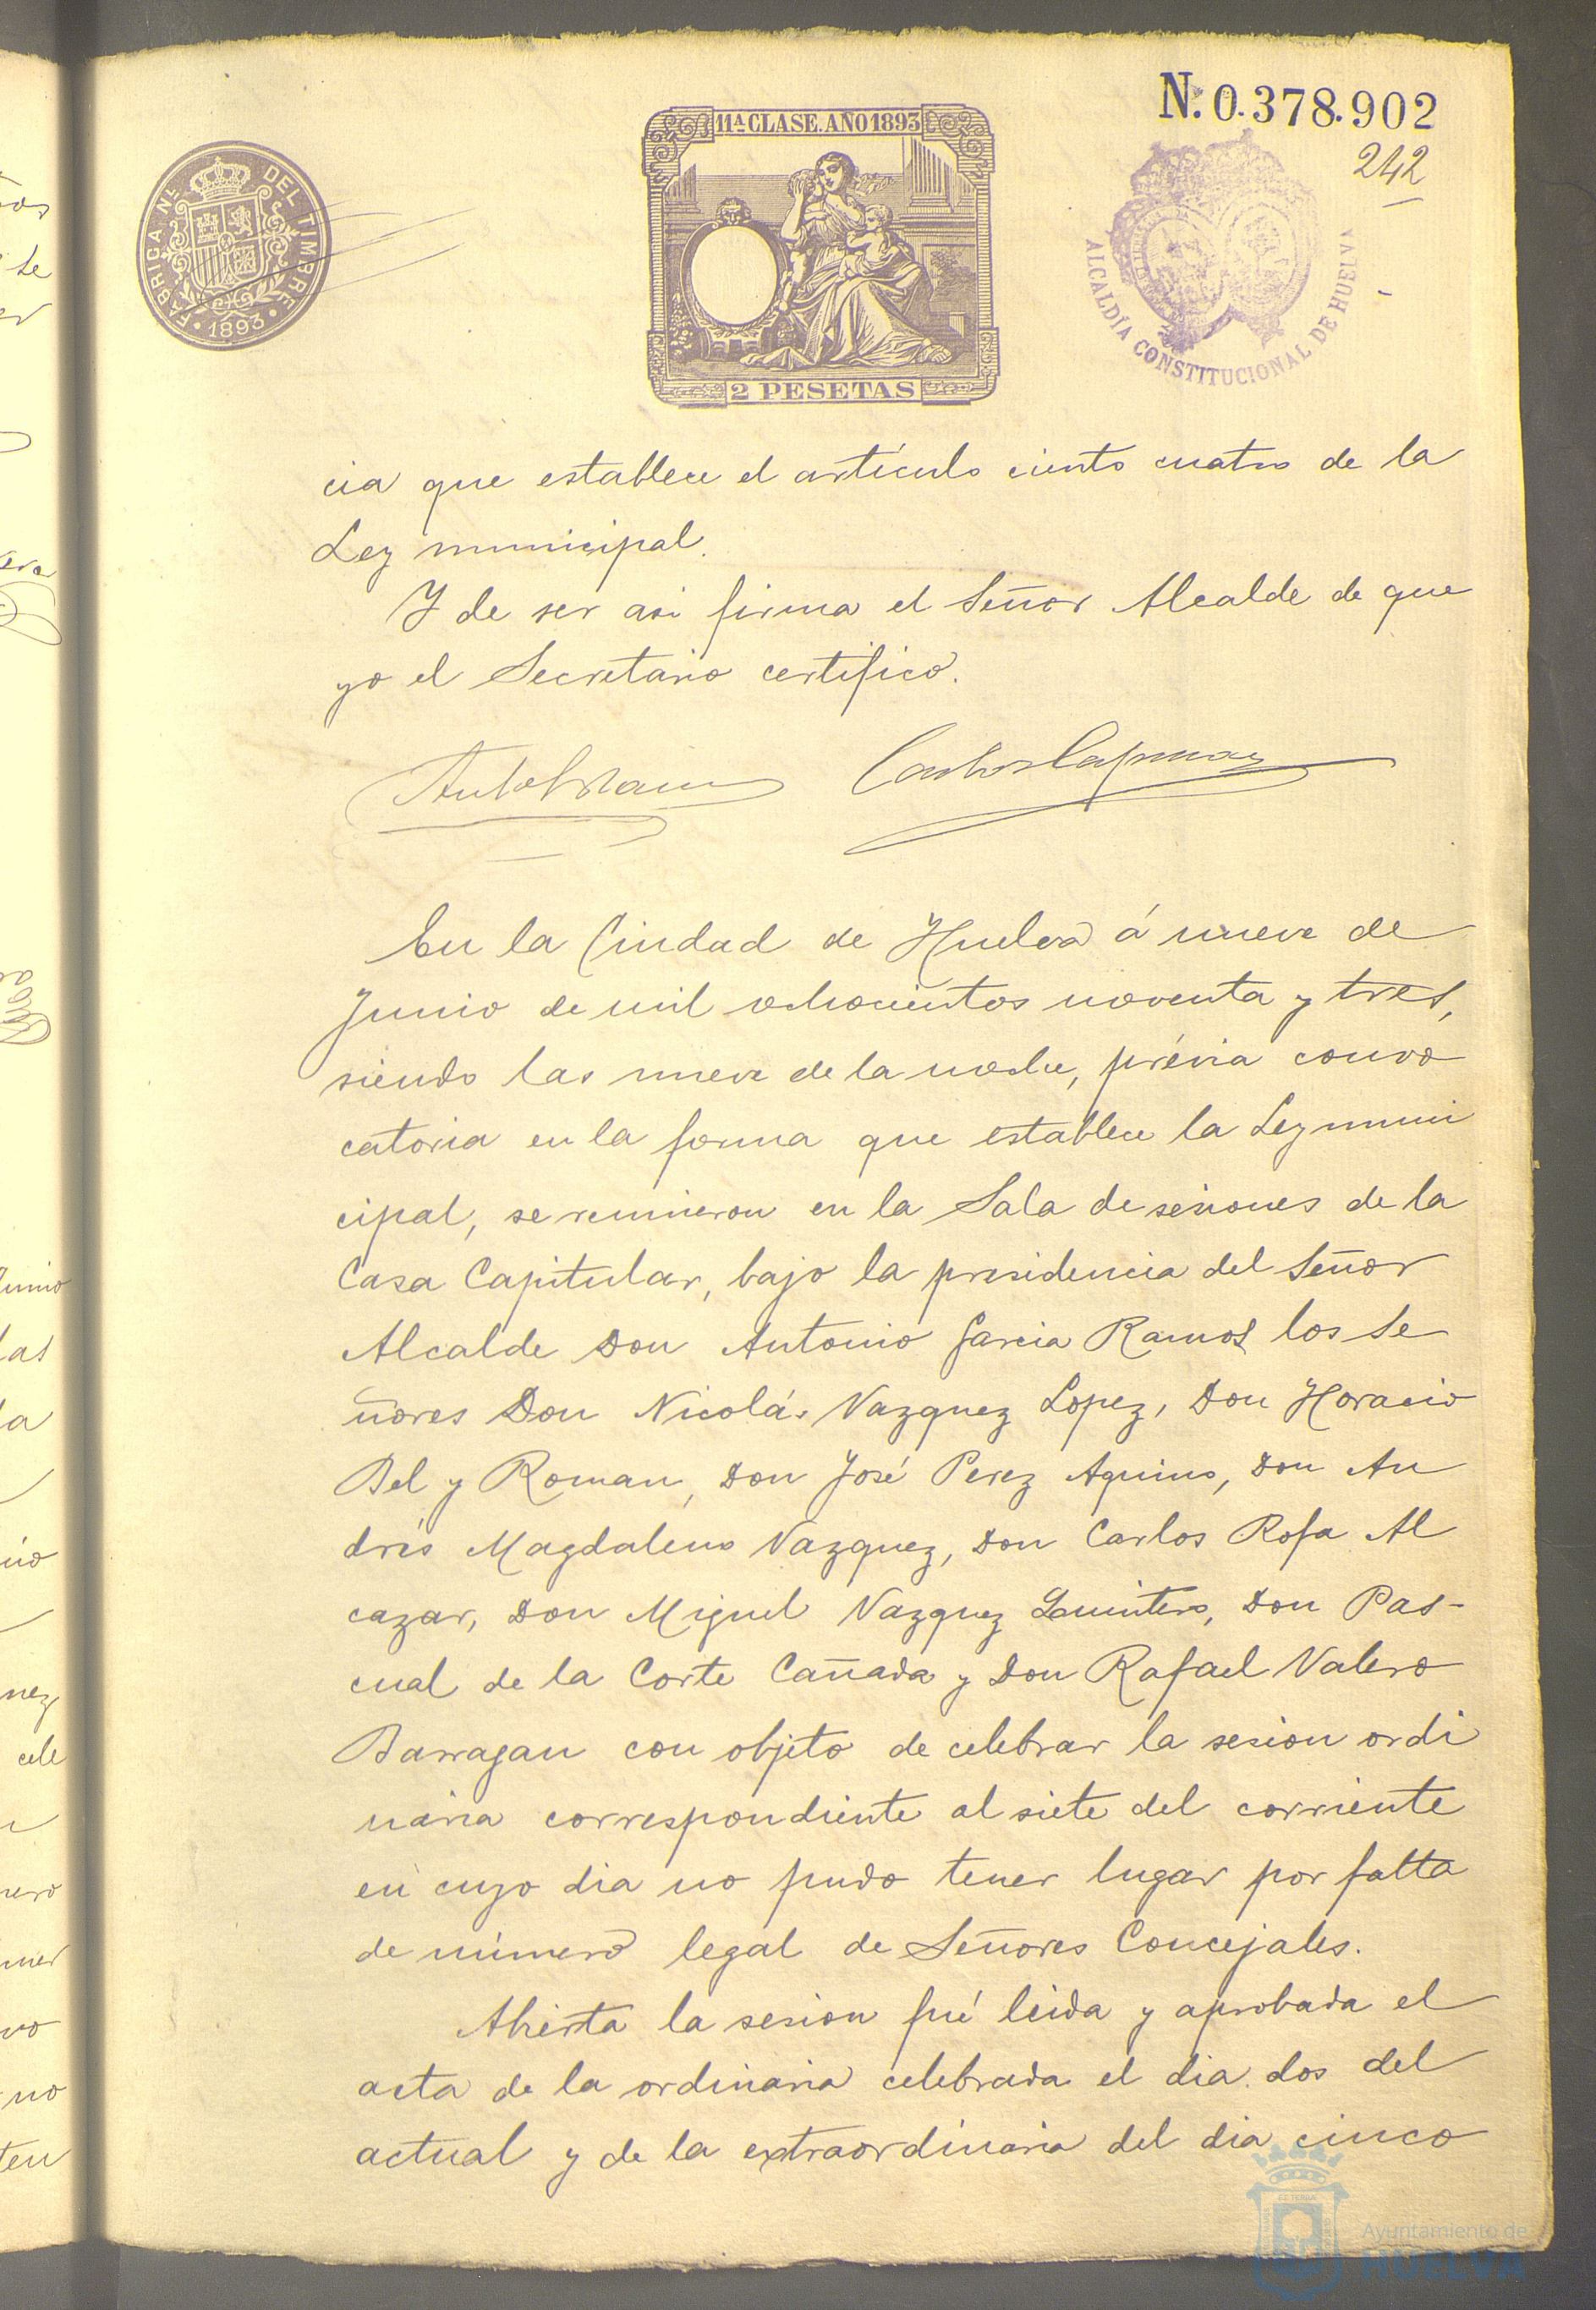 N.º 0.378.902
242
11ª CLASE. AÑO 1893
2 PESETAS
FÁBRICA NL. DEL TIMBRE
1893
ALCALDÍA CONSTITUCIONAL DE HUELVA
cia que establece el artículo ciento cuatro de la
Ley municipal.
Y de ser asi firma el Señor Alcalde de que
yo el Secretario certifico.
En la Ciudad de Huelva á nueve de
Junio de mil ochocientos noventa y tres,
siendo las nueve de la noche, prévia convo
catoria en la forma que establece la Ley muni
cipal, se reunieron en la Sala de sesiones de la
Casa Capitular, bajo la presidencia del Señor
Alcalde Don Antonio Garcia Ramos los Se
ñores Don Nicolás Vazquez Lopez, Don Horacio
Bel y Roman, Don José Perez Aquino, Don An
drés Magdaleno Vazquez, Don Carlos Rofa Al
cazar, Don Miguel Vazquez Quintero, Don Pas-
cual de la Corte Cañada y Don Rafael Valero
Barragan con objeto de celebrar la sesion ordi
naria correspondiente al siete del corriente
en cuyo dia no pudo tener lugar por falta
de número legal de Señores Concejales.
Abierta la sesion fué leida y aprobada el
acta de la ordinaria celebrada el dia dos del
actual y de la extraordinaria del dia cinco
Ayuntamiento de
HUELVA